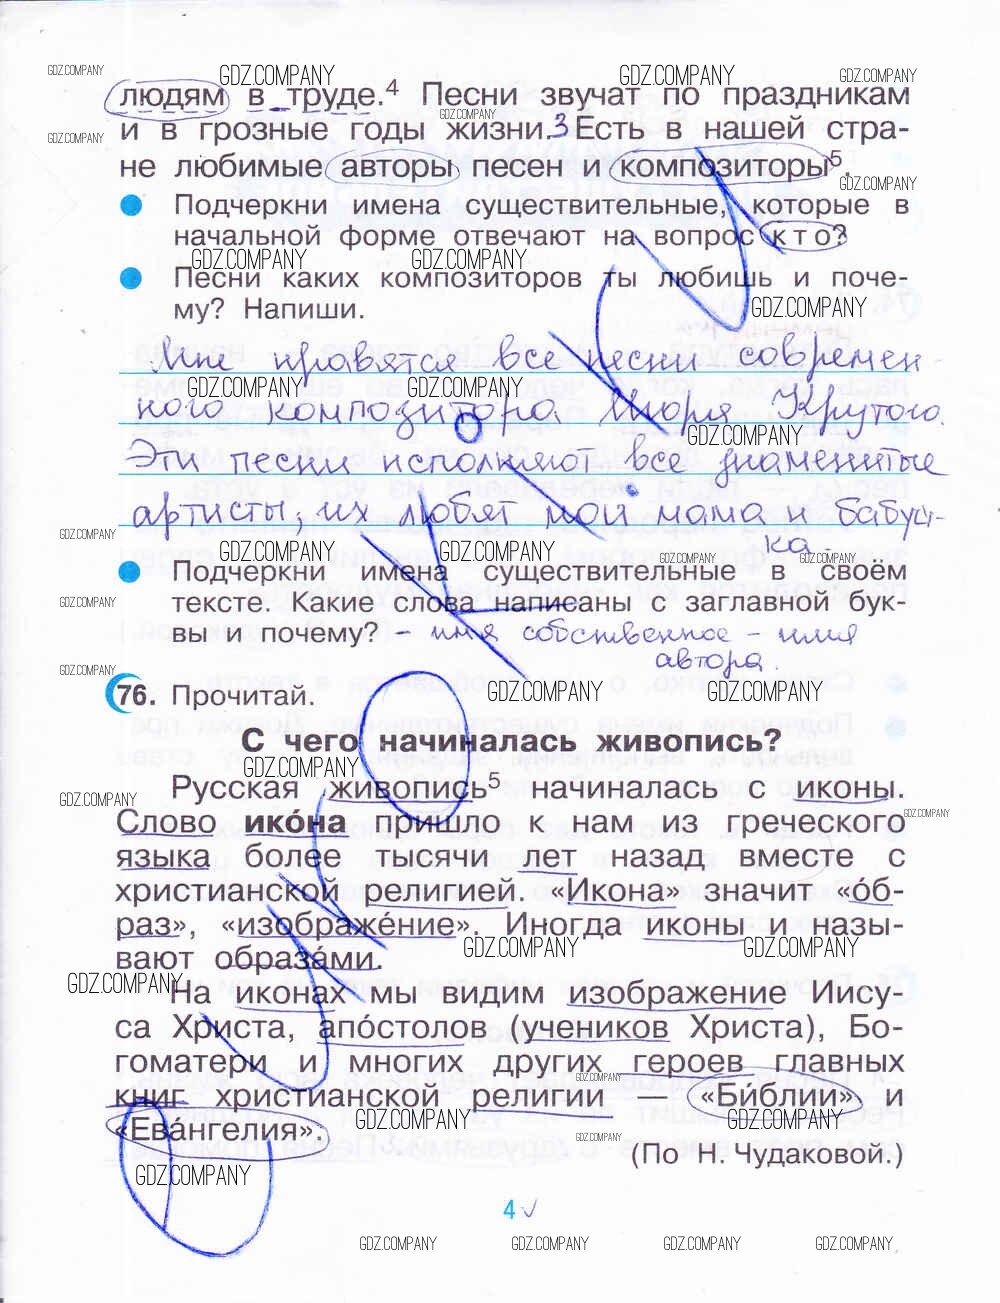 людям в труде.4 Песни звучат по праздникам
и в грозные годы жизни.3 Есть в нашей стра-
не любимые авторы песен и композиторы5.
Подчеркни имена существительные, которые в
начальной форме отвечают на вопрос кто?
Песни каких композиторов ты любишь и поче-
му? Напиши.
Мне нравятся все песни современ
ного композитора Игоря Крутого.
Эти песни исполняют все знаменитые
артисты, их любят мои мама и бабуш-
ка.
Подчеркни имена существительные в своём
тексте. Какие слова написаны с заглавной бук-
вы и почему? – имя собственное – имя
автора.
76. Прочитай.
С чего начиналась живопись?
Русская живопись5 начиналась с иконы.
Слово ико́на пришло к нам из греческого
языка более тысячи лет назад вместе с
христианской религией. «Икона» значит «о́б-
раз», «изображе́ние». Иногда иконы и назы-
вают образа́ми.
На иконах мы видим изображение Иису-
са Христа, апо́столов (учеников Христа), Бо-
гоматери и многих других героев главных
книг христианской религии — «Би́блии» и
«Ева́нгелия».
(По Н. Чудаковой.)
4
GDZ.COMPANY